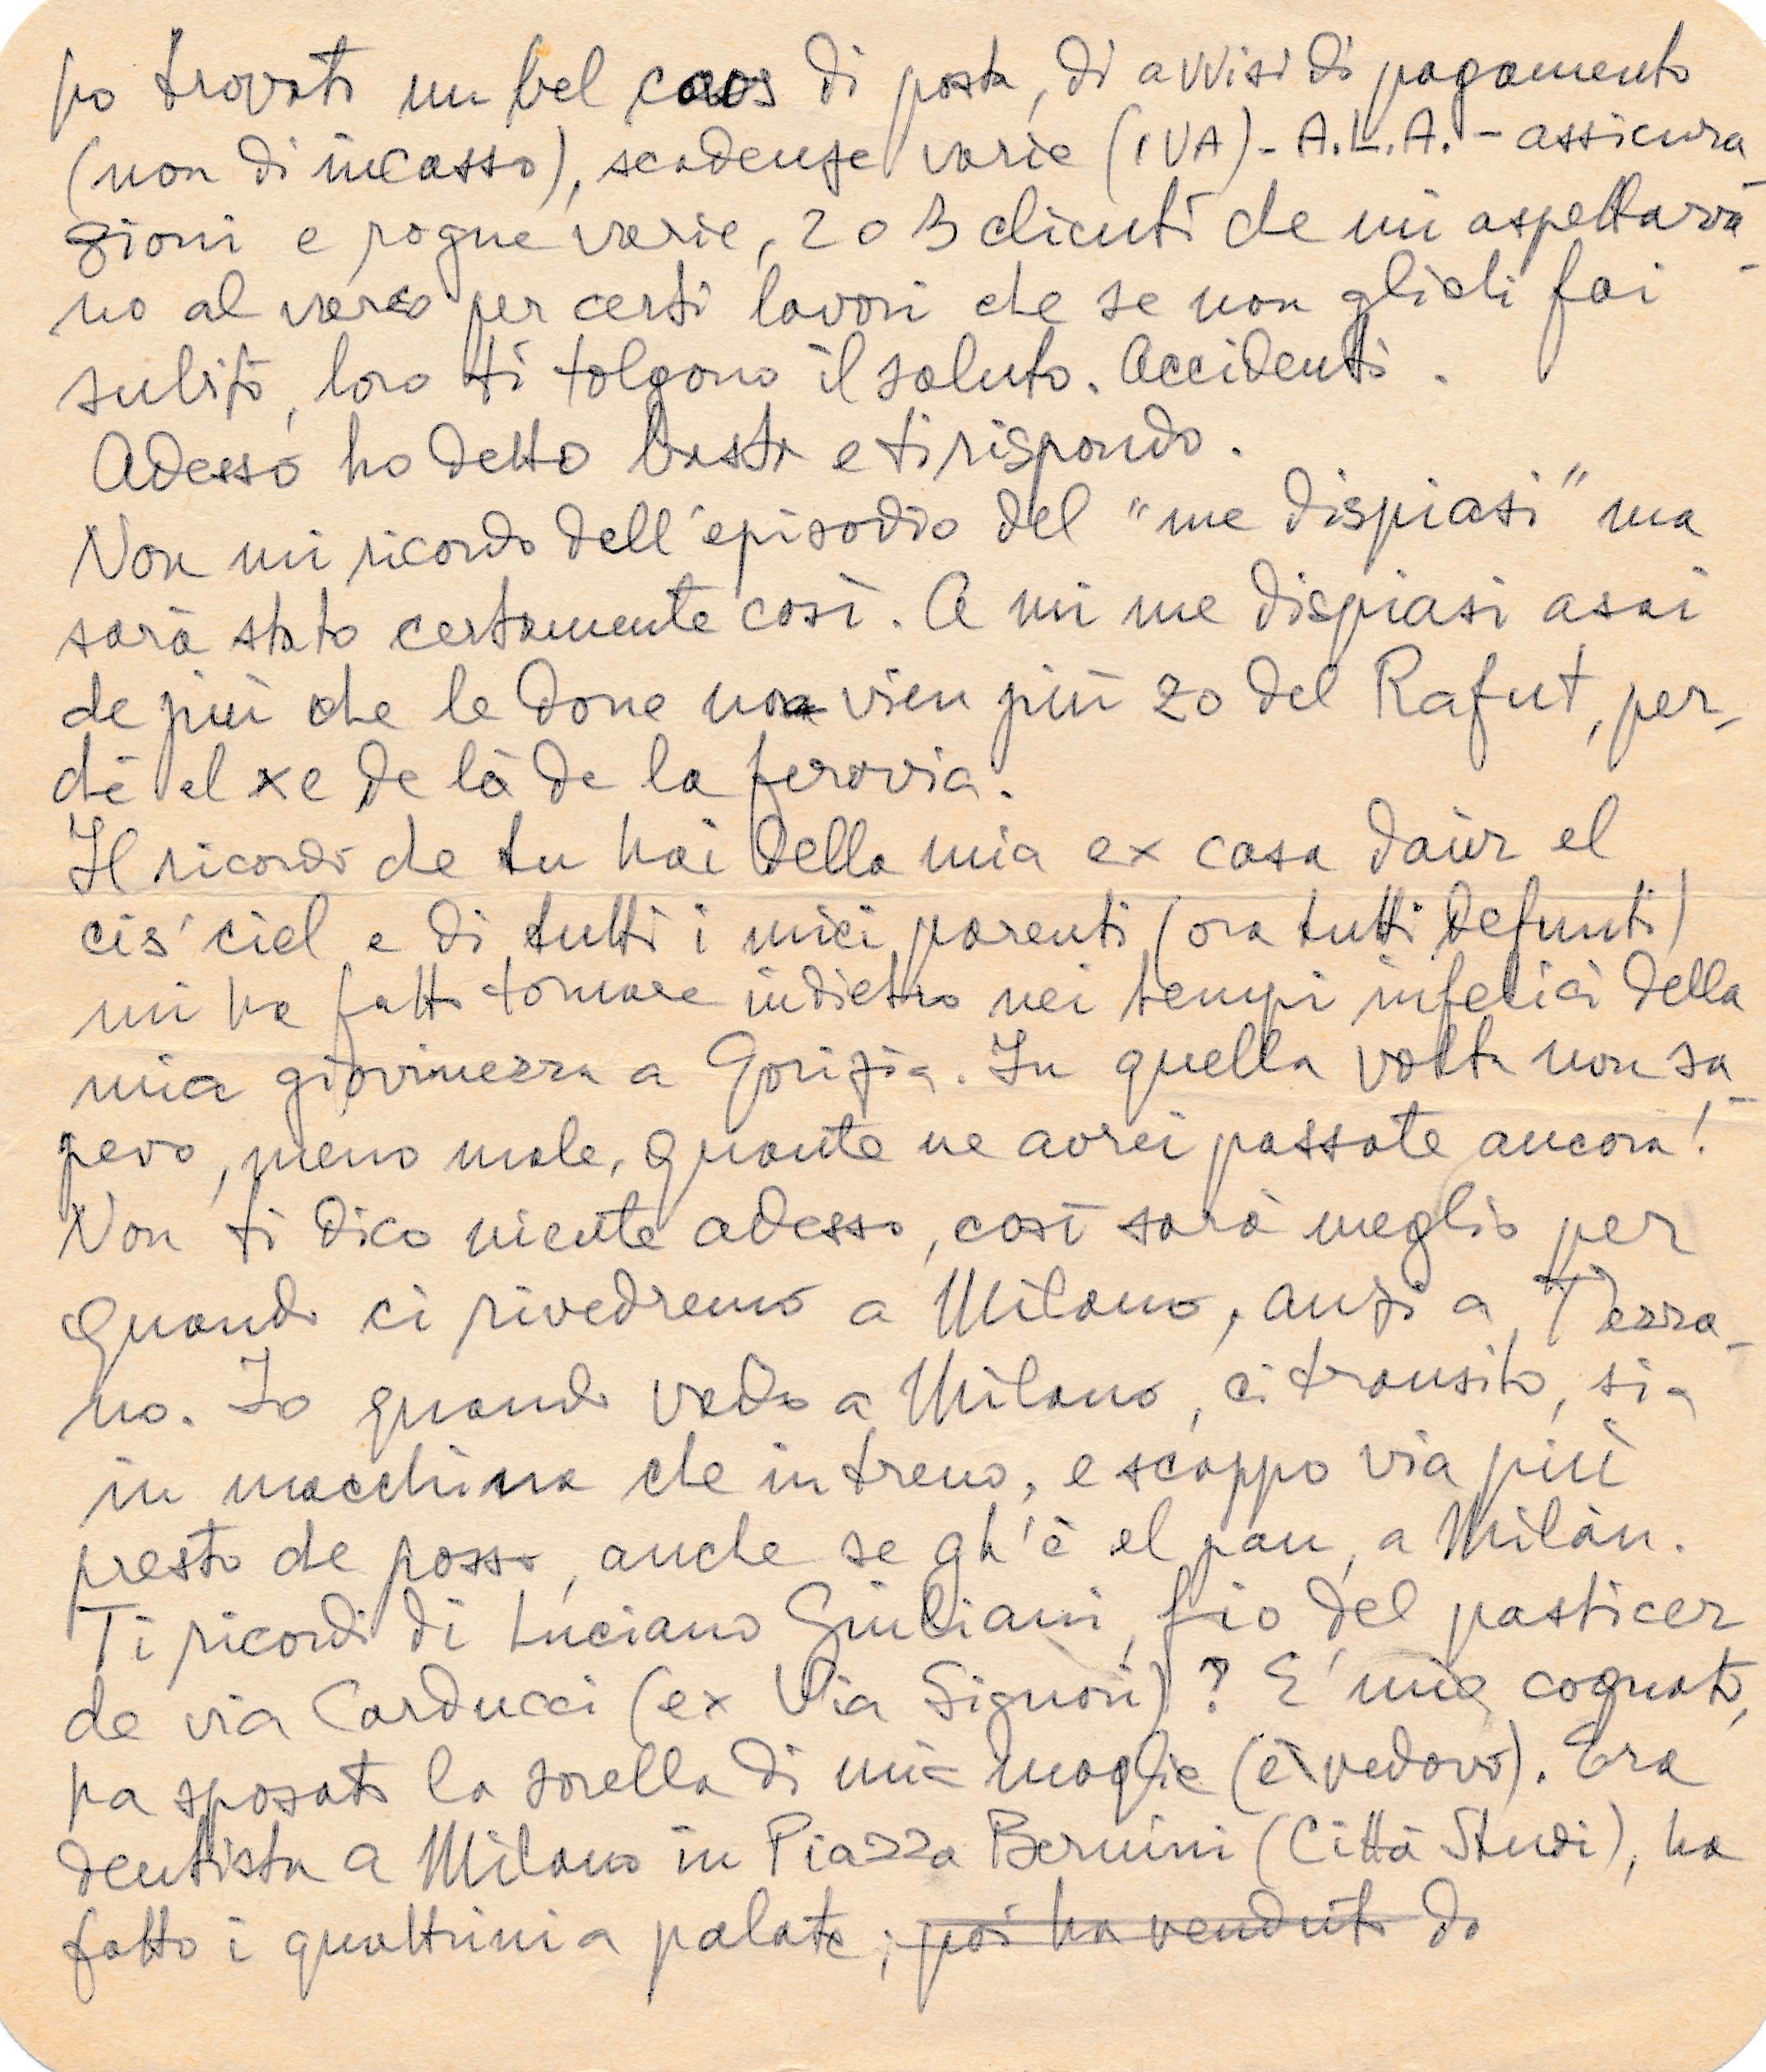 ho trovato un bel caos di posta, di avvisi di pagamento
(non di incasso), scadenze varie (IVA) - A.L.A. - assicura
zioni e rogne varie, 2 o 3 clienti che mi aspettava-
no al varco per certi lavori che se non glieli fai
subito, loro ti tolgono il saluto. Accidenti.
Adesso ho detto basta e ti rispondo.
Non mi ricordo dell'episodio del "me dispiasi" ma
sarà stato certamente così. A mi me dispiasi asai
de più che le done non vien più zo del Rafut, per-
chè el xe de là de la ferovia.
Il ricordo che tu hai della mia ex casa daùr el
cis'ciel e di tutti i miei parenti (ora tutti defunti)
mi ha fatto tornare indietro nei tempi infelici della
mia giovinezza a Gorizia. In quella volta non sa-
pevo, meno male, quante ne avrei passate ancora!
Non ti dico niente adesso, così sarà meglio per
quando ci rivedremo a Milano, anzi a Trezza-
no. Io quando vado a Milano, ci transito, sia
in macchina che in treno, e scappo via più
presto che posso, anche se gh'è el pan, a Milàn.
Ti ricordi di Luciano Giuliani, fio del pasticer
de via Carducci (ex Via Signori)? E' mio cognato,
ha sposato la sorella di mia moglie (è vedovo). Era
dentista a Milano in Piazza Bernini (Città Studi), ha
fatto i quattrini a palate; poi ha venduto da